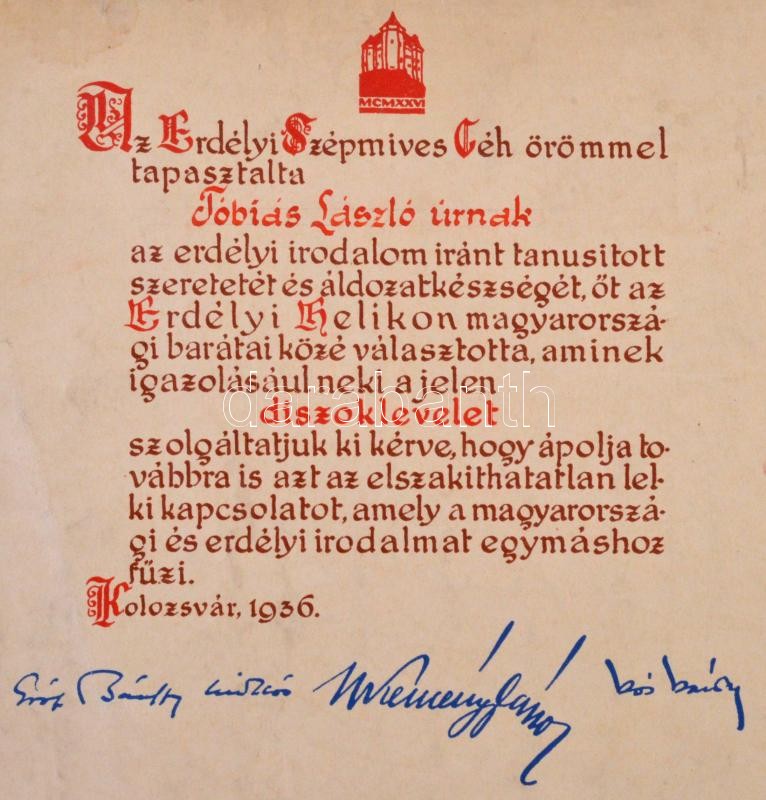 MCMXXVI
Az Erdélyi Szépmives Céh örömmel
tapasztalta
Tóbiás László úrnak
az erdélyi irodalom iránt tanusitott
szeretetét és áldozatkészségét, őt az
Erdélyi Helikon magyarorszá-
gi barátai közé választotta, aminek
igazolásáulneki a jelen
diszoklevelet
darabanth
szolgáltatjuk ki kérve, hogy ápolja to-
vábbra is azt az elszakithatatlan lel-
ki kapcsolatot, amely a magyarorszá-
gi és erdélyi irodalmat egymáshoz
fűzi.
Kolozsvár, 1936.
Gróf Bánffy Miklós Kemény János Kós Károly